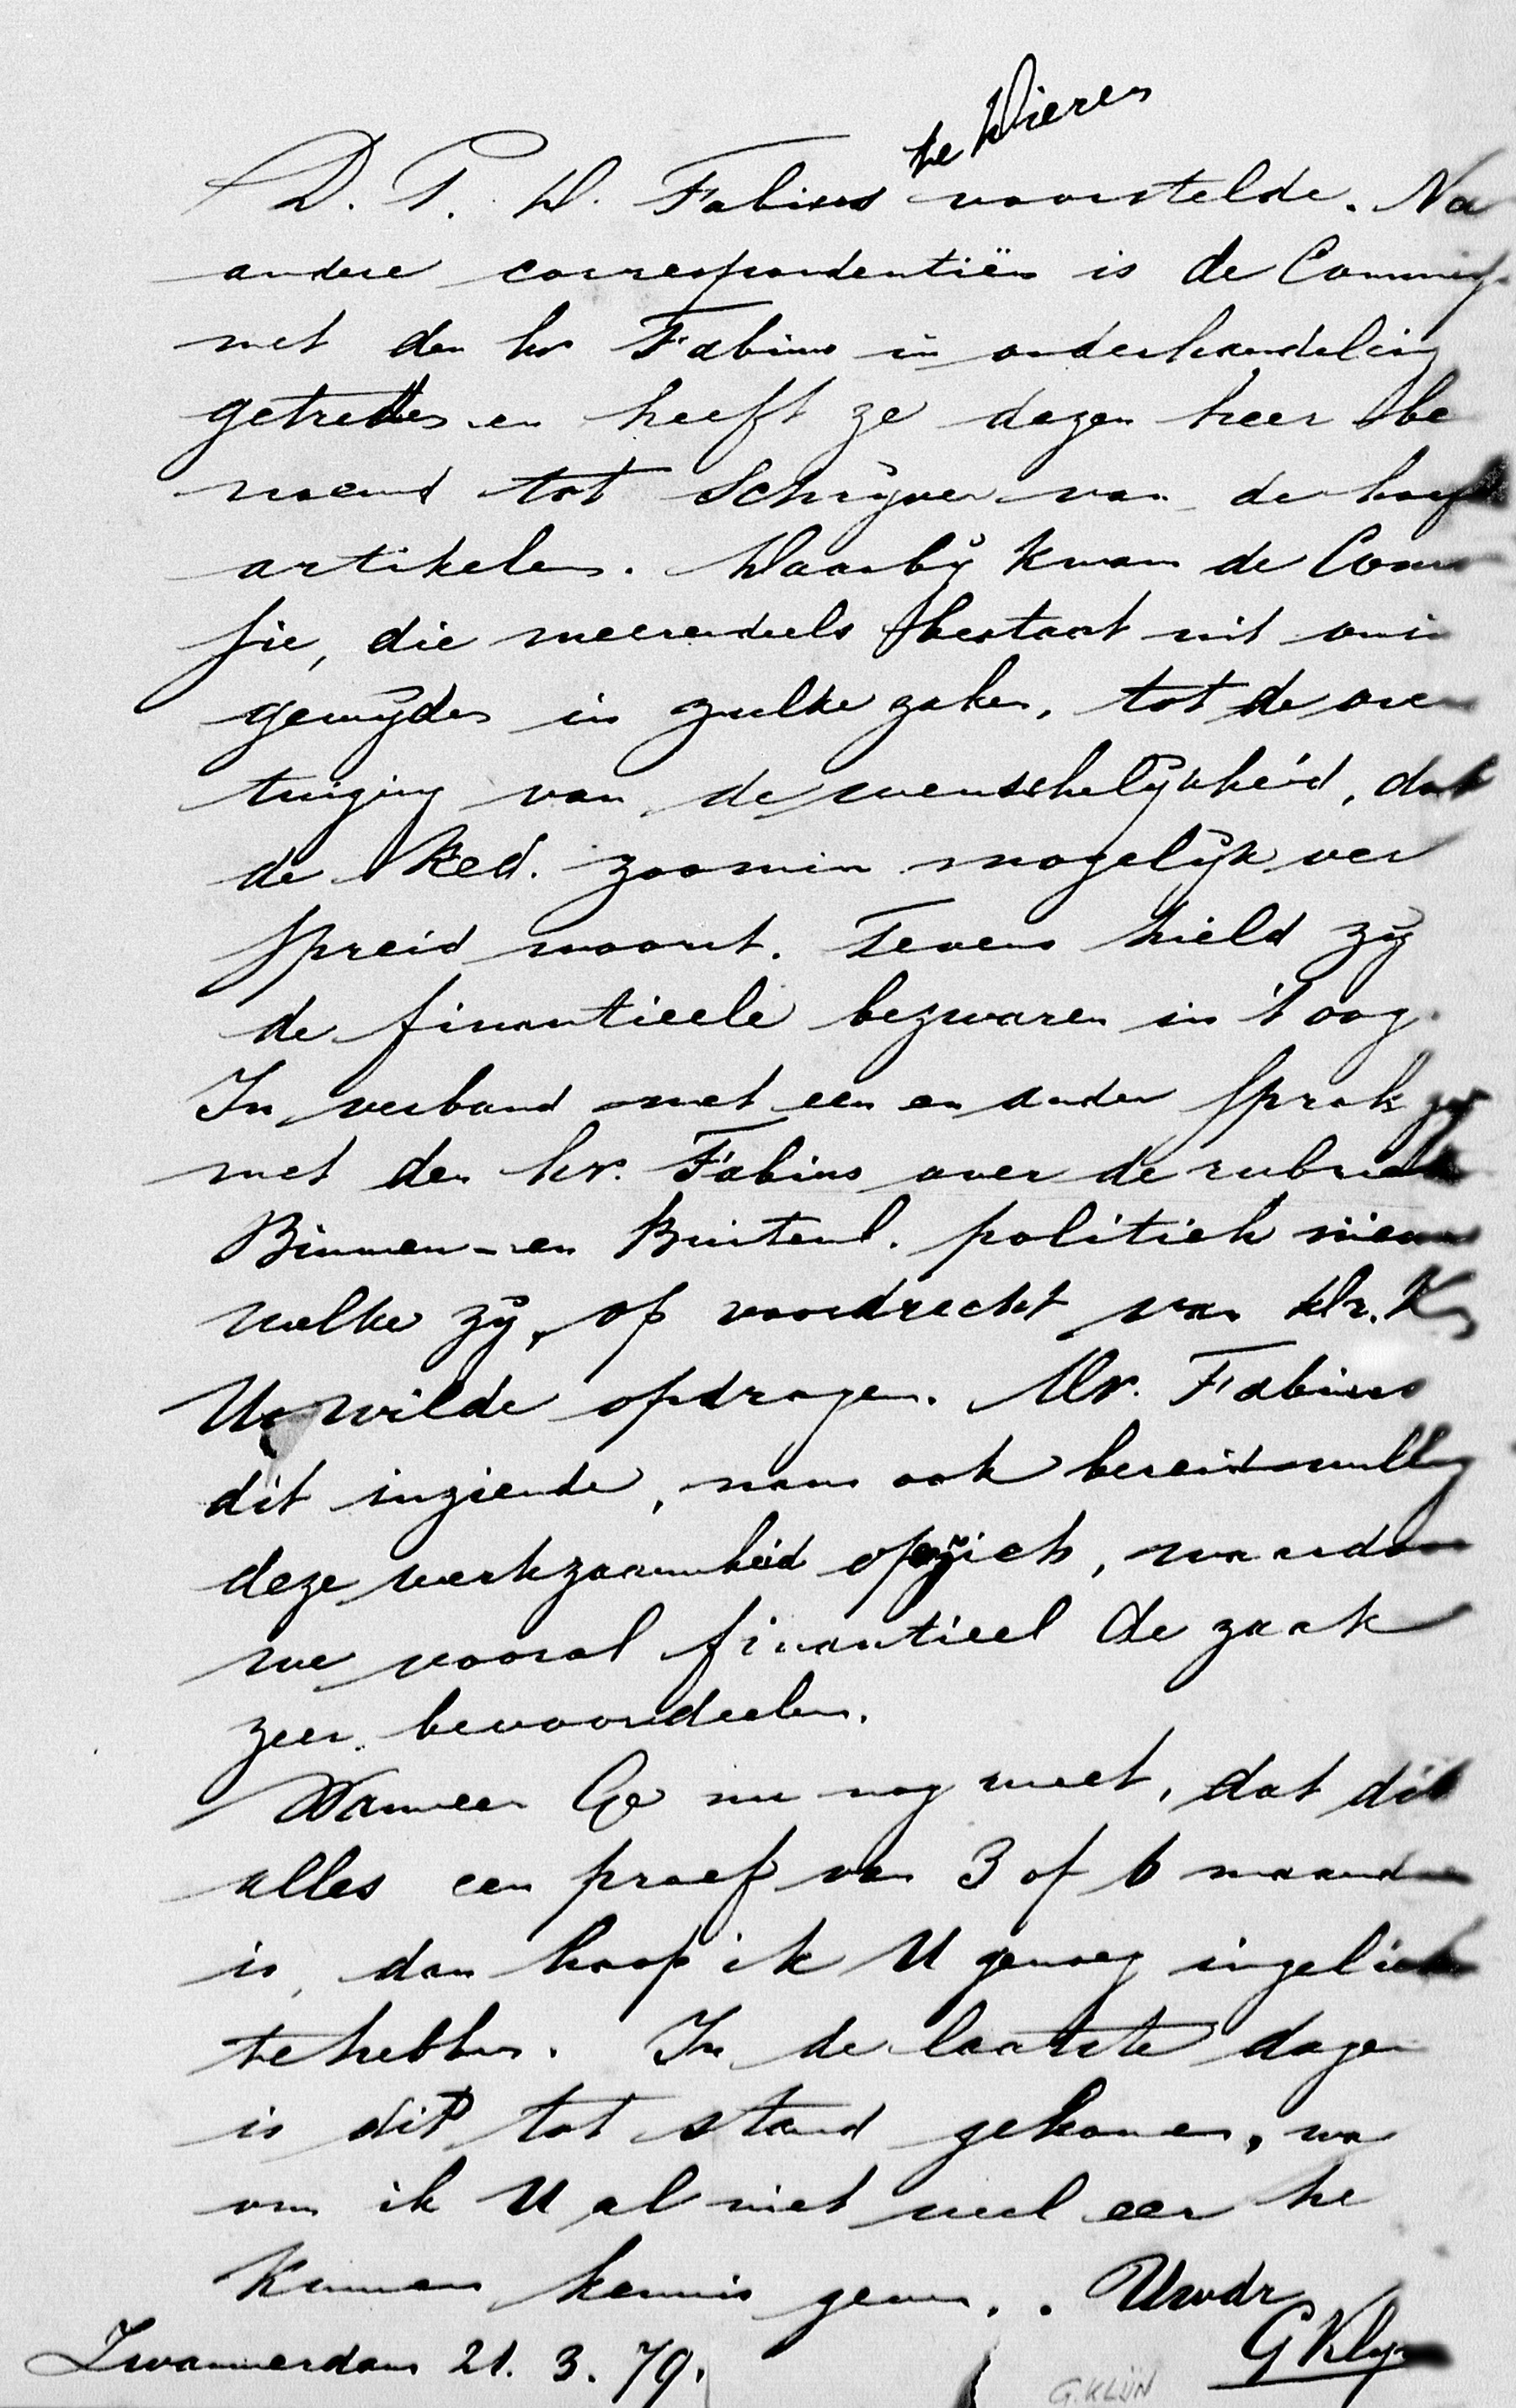 te Wieren
D. P. D. Fabius voorstelde. Na
andere correspondentiën is de Commis
met den hr Fabius in onderhandeling
getreden en heeft ze dezen heer be
noemd tot Schrijver van de hoofd
artikelen. Daarbij kwam de Com
sie, die meerendeels bestaat uit onin
gewijden in zulke zaken, tot de over
tuiging van de wenschelijkheid, dat
de Red. zoomin mogelijk ver
spreid woont. Tevens hield zij
de finantieele bezwaren in 't oog.
In verband met een en ander sprak zij
met den hr. Fabius over de rubriek
Binnen- en Buitenl. politiek nieuws
welke zij, op voordracht van Dr. K
U wilde opdragen. Mr. Fabius
dit inziende, nam ook bereidwillig
deze werkzaamheid op zich, waardoor
we vooral finantieel de zaak
zeer bevoordeelen.
Wanneer Ge nu nog weet, dat dit
alles een proef van 3 of 6 maanden
is, dan hoop ik U genoeg ingelicht
te hebben. In de laatste dagen
is dit tot stand gekomen, waar
om ik U al niet veel eer he
kunnen kennis geven. Uwdr
GKlijn
Zwammerdam 21. 3. 79.
G. KLIJN